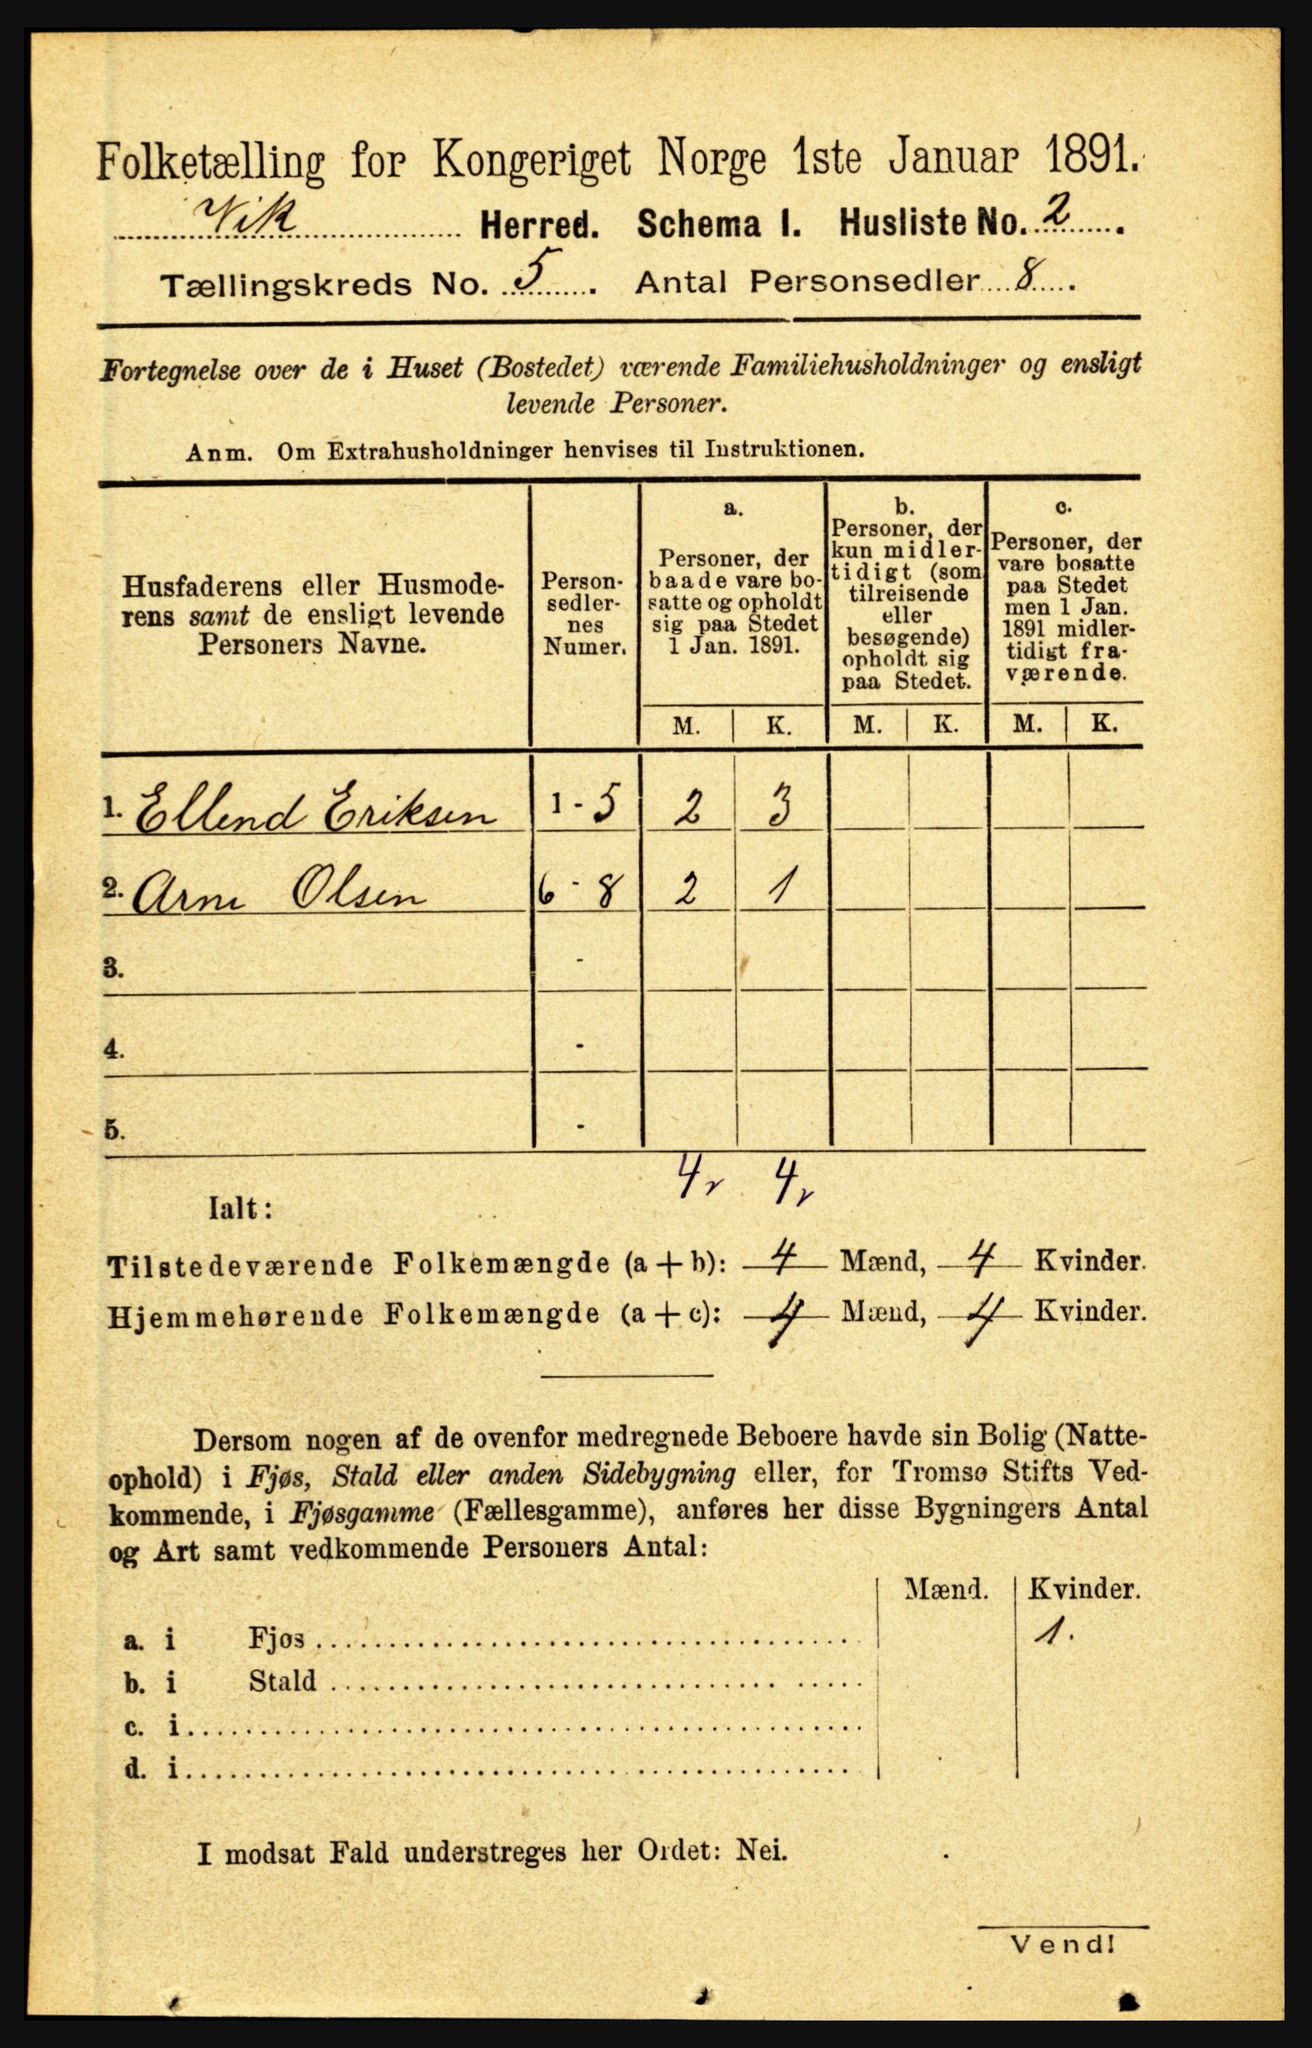 Folketælling for Kongeriget Norge 1ste Januar 1891.
Vik Herred. Schema I. Husliste No. 2.
Tællingskreds No. 5. Antal Personsedler 8.
Fortegnelse over de i Huset (Bostedet) værende Familiehusholdninger og ensligt
levende Personer.
Anm. Om Extrahusholdninger henvises til Instruktionen.
Husfaderens eller Husmode-
rens samt de ensligt levende
Personers Navne.
Person-
sedler-
nes
Numer.
a.
Personer, der
baade vare bo-
satte og opholdt
sig paa Stedet
1 Jan. 1891.
b.
Personer, der
kun midler-
tidigt (som
tilreisende
eller
besøgende)
opholdt sig
paa Stedet.
c.
Personer, der
vare bosatte
paa Stedet
men 1 Jan.
1891 midler-
tidigt fra-
værende.
M. K. M. K. M. K.
1. Ellend Eriksen 1 - 5 2 3
2. Arne Olsen 6 - 8 2 1
3. -
4. -
5. -
4 v 4 v
Ialt:
Tilstedeværende Folkemængde (a + b): 4 Mænd, 4 Kvinder.
Hjemmehørende Folkemængde (a + c): 4 Mænd, 4 Kvinder.
Dersom nogen af de ovenfor medregnede Beboere havde sin Bolig (Natte-
ophold) i Fjøs, Stald eller anden Sidebygning eller, for Tromsø Stifts Ved-
kommende, i Fjøsgamme (Fællesgamme), anføres her disse Bygningers Antal
og Art samt vedkommende Personers Antal:
Mænd. Kvinder.
a. i Fjøs 1.
b. i Stald
c. i
d. i
I modsat Fald understreges her Ordet: Nei.
Vend!